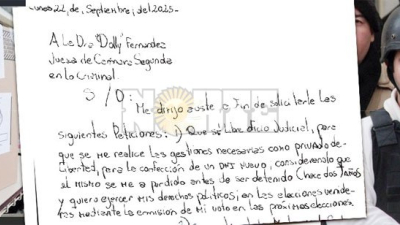 Lunes 22, de, Septiembre; del 2025-
A La Dra "Dolly" Fernandez
Jueza de Camara Segunda
en lo Criminal.
S / D: Me dirijo a uste a fin de solicitarle las
siguientes Peticiones: 1) Que se libre oficio Judicial, para
que se me realice las gestiones necesarias como privado de
libertad, para la confección de un DNI nuevo, considerando que
el mismo se me a perdido antes de ser detenido (hace dos años)
y quiero ejercer mis derechos politicos; en las elecciones venide-
ras mediante la enmision de mi voto en las proximas elecciones.
NORTE